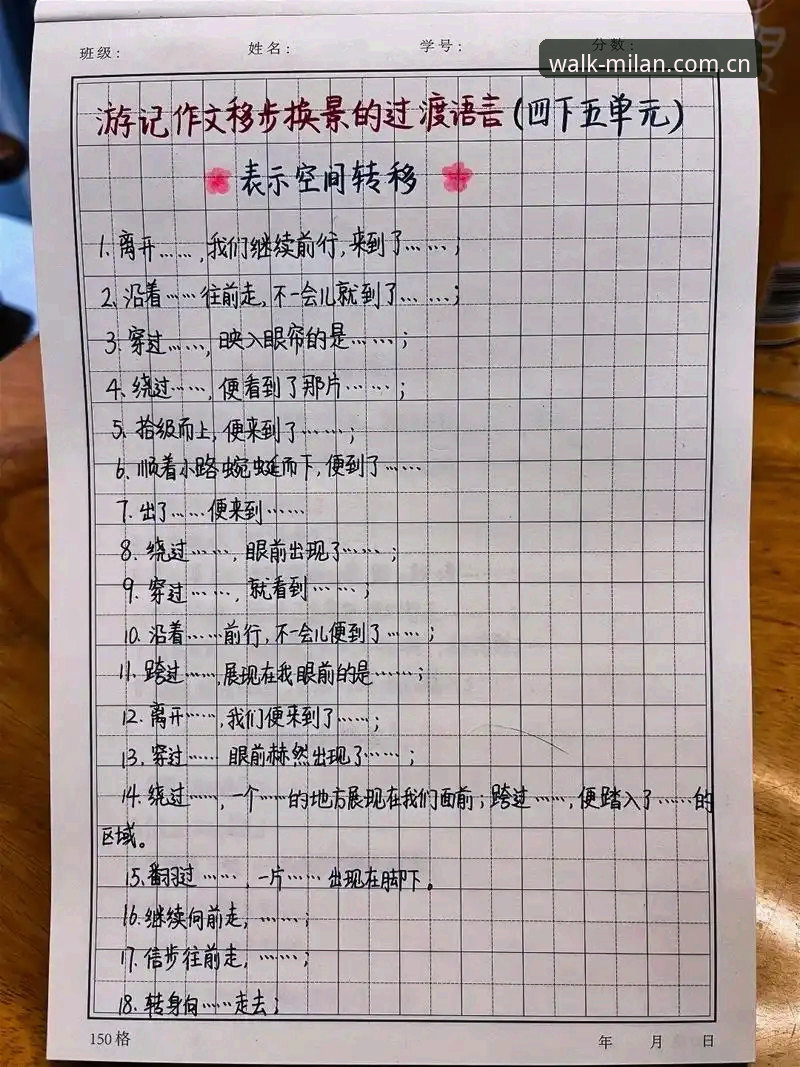 班级: 姓名: 学号: 分数:
walk-milan.com.cn
游记作文移步换景的过渡语言(四下五单元)
表示空间转移
1.离开……,我们继续前行,来到了……;
2.沿着……往前走,不一会儿就到了……;
3.穿过……,映入眼帘的是……;
4.绕过……,便看到了那片……;
5.拾级而上,便来到了……;
6.顺着小路蜿蜒而下,便到了……
7.出了……便来到……
8.绕过……,眼前出现了……;
9.穿过……,就看到……;
10.沿着……前行,不一会儿便到了……;
11.跨过……,展现在我眼前的是……;
12.离开……,我们便来到了……;
13.穿过……眼前赫然出现了……;
14.绕过……,一个……的地方展现在我们面前;跨过……,便踏入了……的
区域。
15.翻过……,一片……出现在脚下。
16.继续向前走,……;
17.信步往前走,……;
18.转身向……走去;
150格 年 月 日